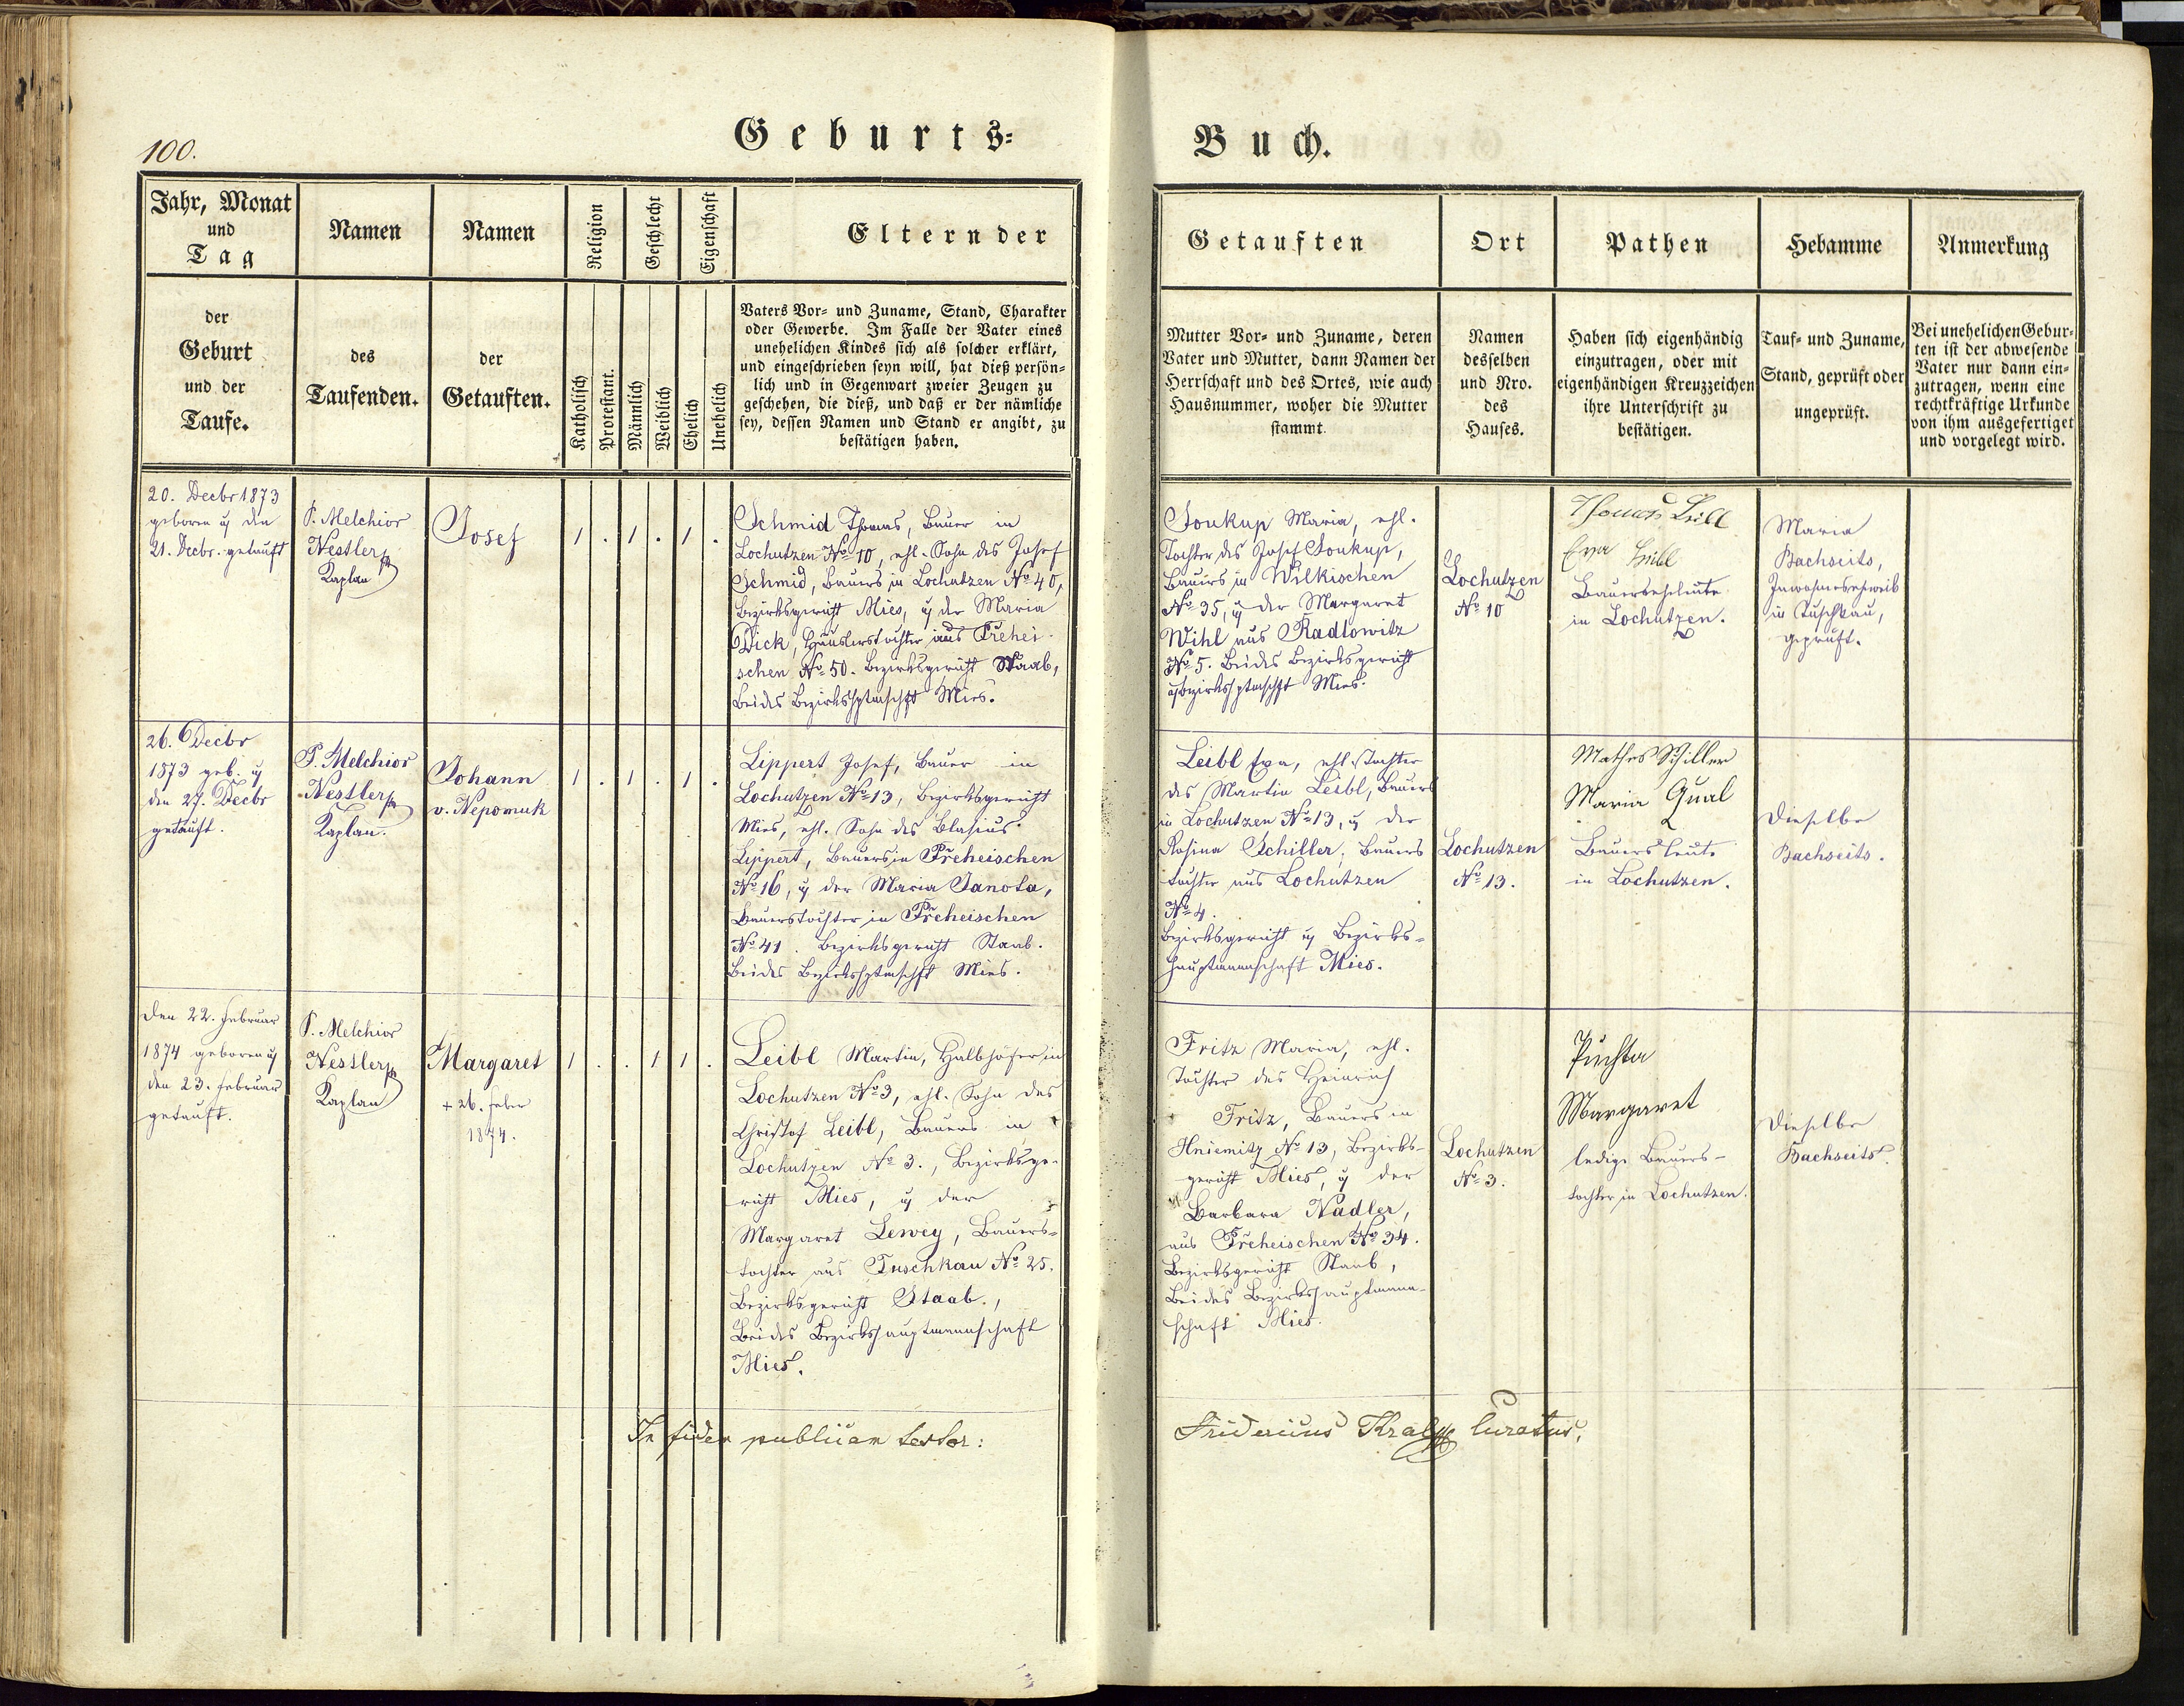 100.
Geburts-
Buch.
Jahr, Monat
und
Tag
der
Geburt
und der
Taufe.
Namen
des
Taufenden.
Namen
der
Getauften.
Religion
Katholisch
Protestant.
Geschlecht
Männlich
Weiblich
Eigenschaft
Ehelich
Unehelich
Eltern der
Vaters Vor- und Zuname, Stand, Charakter
oder Gewerbe. Im Falle der Vater eines
unehelichen Kindes sich als solcher erklärt,
und eingeschrieben seyn will, hat dieß persön-
lich und in Gegenwart zweier Zeugen zu
geschehen, die dieß, und daß er der nämliche
sey, dessen Namen und Stand er angibt, zu
bestätigen haben.
Getauften
Mutter Vor- und Zuname, deren
Vater und Mutter, dann Namen der
Herrschaft und des Ortes, wie auch
Hausnummer, woher die Mutter
stammt.
Ort
Namen
desselben
und Nro.
des
Hauses.
Pathen
Haben sich eigenhändig
einzutragen, oder mit
eigenhändigen Kreuzzeichen
ihre Unterschrift zu
bestätigen.
Hebamme
Tauf- und Zuname,
Stand, geprüft oder
ungeprüft.
Anmerkung
Bei unehelichen Gebur-
ten ist der abwesende
Vater nur dann ein-
zutragen, wenn eine
rechtkräftige Urkunde
von ihm ausgefertiget
und vorgelegt wird.
20. Decbr 1873
geboren u den
21. Decbr. getauft
P. Melchior
Nestler
Kaplan
Josef
1 . 1 . 1 .
Schmid Thomas, Bauer in
Lochutzen No 10, ehl. Sohn des Josef
Schmid, Bauers in Lochutzen No 40,
Bezirksgericht Mies, u der Maria
Dick, Häuslerstochter aus Přehei-
schen No 50. Bezirksgericht Staab,
beides Bezirkshptmschft Mies.
Soukup Maria, ehl.
Tochter des Josef Soukup,
Bauers in Wilkischen
No 35, u der Margaret
Wihl aus Radlowitz
No 5. beides Bezirksgericht
u Bezirkshptmschft Mies.
Lochutzen
No 10
Thomas Leibl
Eva Leibl
Bauerseheleute
in Lochutzen.
Maria
Bachseits,
Inwohnerseheweib
in Tuschkau,
geprüft.
26. Decbr
1873 geb. u
den 27. Decbr
getauft.
P. Melchior
Nestler
Kaplan.
Johann
v. Nepomuk
1 . 1 . 1 .
Lippert Josef, Bauer in
Lochutzen No 13, Bezirksgericht
Mies, ehl. Sohn des Blasius
Lippert, Bauers in Přeheischen
No 16, u der Maria Janota,
Bauerstochter in Přeheischen
No 41. Bezirksgericht Staab.
beides Bezirkshptmschft Mies.
Leibl Eva, ehl. Tochter
des Martin Leibl, Bauers
in Lochutzen No 13, u der
Rosina Schiller, Bauers
tochter aus Lochutzen
No 4.
Bezirksgericht u Bezirks-
hauptmannschaft Mies.
Lochutzen
No 13.
Mathes Schiller
Maria Qual
Bauersleute
in Lochutzen.
Dieselbe
Bachseits.
Den 22. Februar
1874 geboren u
den 23. Februar
getauft.
P. Melchior
Nestler
Kaplan
Margaret
+ 26. Feber
1874.
1 . . 1 1 .
Leibl Martin, Halbhöfer in
Lochutzen No 3, ehl. Sohn des
Christof Leibl, Bauers in
Lochutzen No 3., Bezirksge-
richt Mies, u der
Margaret Lewey, Bauers-
tochter aus Tuschkau No 25.
Bezirksgericht Staab.,
Beides Bezirkshauptmannschaft
Mies.
Fritz Maria, ehl.
Tochter des Heinrich
Fritz, Bauers in
Hniemitz No 13, Bezirks-
gericht Mies, u der
Barbara Nadler,
aus Přeheischen No 34.
Bezirksgericht Staab,
Beides Bezirkshauptmann-
schaft Mies.
Lochutzen
No 3.
Puchta
Margaret
ledige Bauers-
tochter in Lochutzen.
Dieselbe
Bachseits.
In fidem publicam testor:
Fridericus Kraly Curatus.